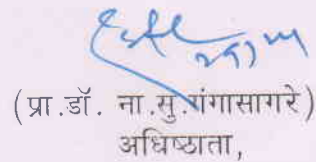 (प्रा.डॉ. ना.सु.गंगासागरे)
अधिष्ठाता,